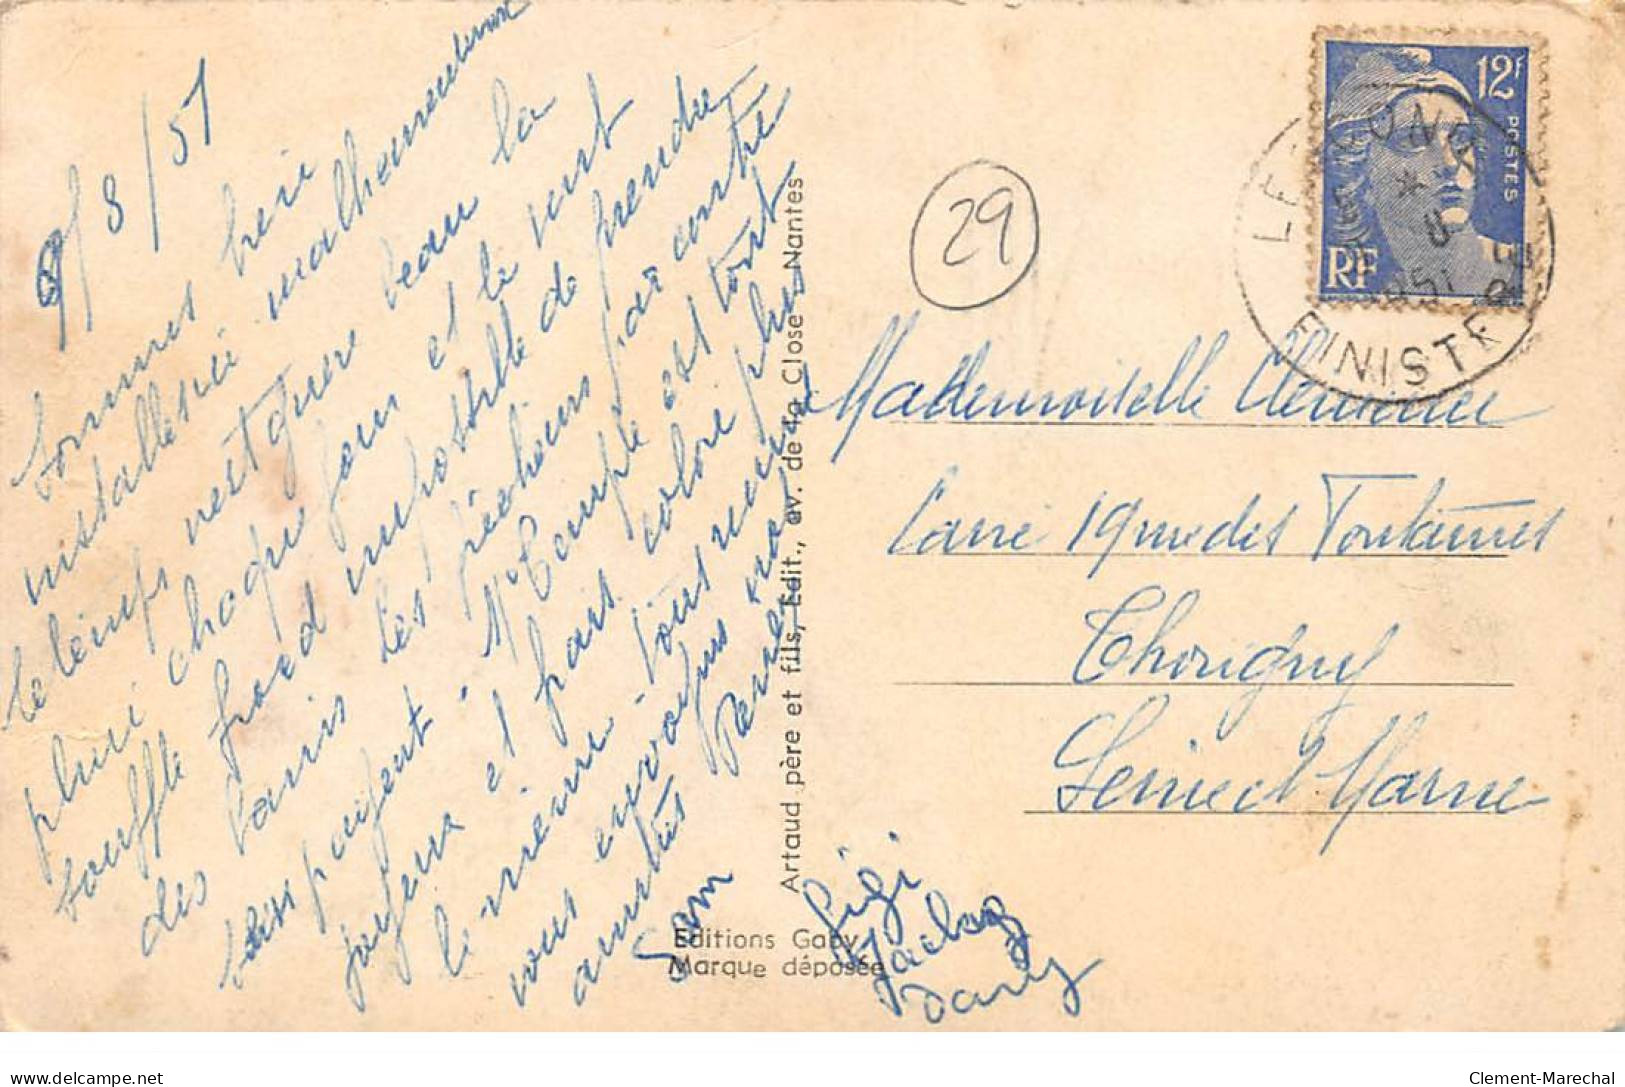 9/8/51
Sommes bien
installés ici malheureusement
le temps n'est guère beau la
pluie chaque jour et le vent
souffle froid impossible de prendre
des bains les pêcheurs par contre
s'en payent. Mr Temple est tout
joyeux et frais colore plus
le mième. Tous
vous envoyons nos
amitiés
Sam
Gigi
Jacky
Dany
Artaud père et fils, Edit., av. de la Close Nantes
Editions Gaby
Marque déposée
29
12F
POSTES
RF
LE CONQ
8
1951
FINISTERE
Mademoiselle Clémence
Carré 19 rue des Fontaines
Thorigny
Seine et Marne
delcampe.net
Clement-Marechal